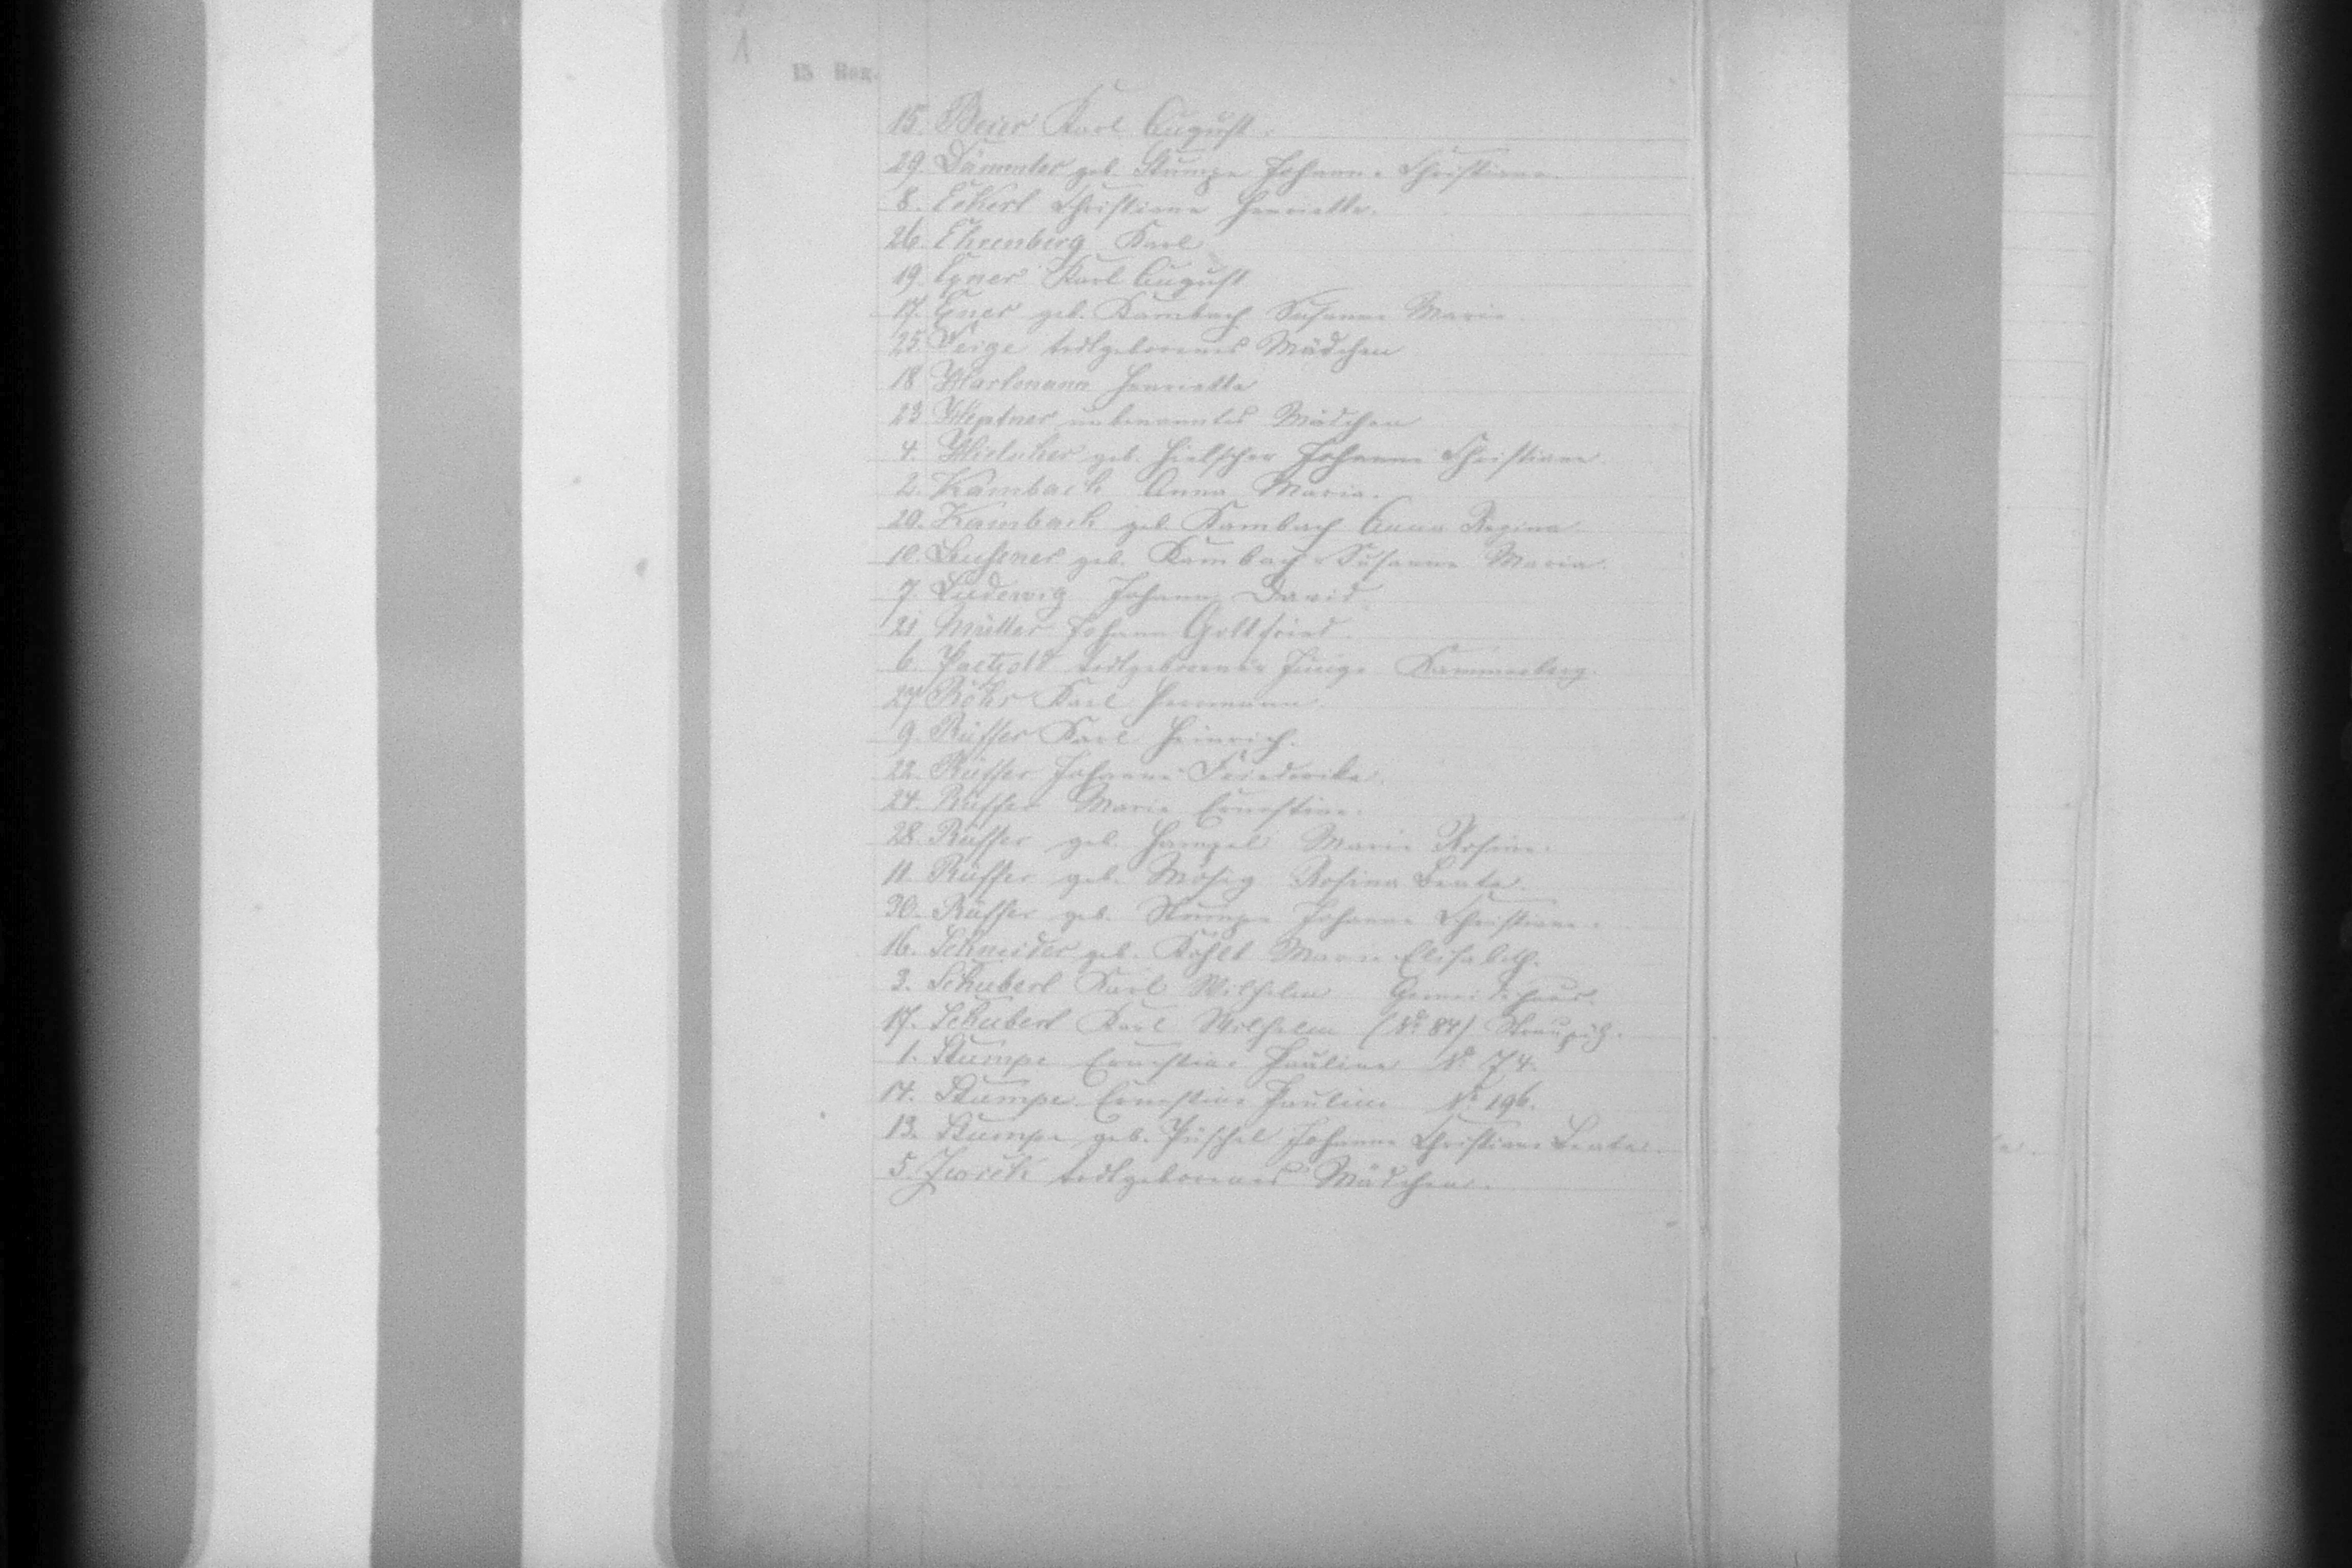 15. Beier Karl August.
29. Dämmler geb. Stumpe Johanne Christiane.
8. Eckert Christiane Henriette.
26. Ehrenberg Karl
19. Exner Karl August
17. Exner geb. Kambach Susanne Marie
25. Feige todtgeborenes Mädchen
18 Hartmann Henriette
23 Heptner unbenanntes Mädchen
4. geb. Hielscher Johanne Christiane
2. Kambach Anna Maria.
20. Kambach geb. Kambach Anna Regina
10. geb. Kambach Susanne Maria.
7. Ludewig Johann David
21 Müller Johann Gottfried.
6. Paetzold todtgeborener Junge
27 Karl Hermann.
9. Rüffer Karl Heinrich.
22. Rüffer Johanne Friederike.
24. Rüffer Marie Ernestine.
28. Rüffer geb. Hampel Marie Rosine.
11. Rüffer geb. Mosig Rosina Beate.
30. Rüffer geb. Stumpe Johanne Christiane.
16. Schneider geb. Marie Elisabeth.
3. Schubert Karl Wilhelm Gemeindehaus.
17. Schubert Karl Wilhelm (No 84) Straupitz.
1. Stumpe Ernestine Pauline No 74.
14. Stumpe Ernestine Pauline No 196.
13. Stumpe geb. Püschel Johanne Christiane Beate.
5. todtgeborenes Mädchen.